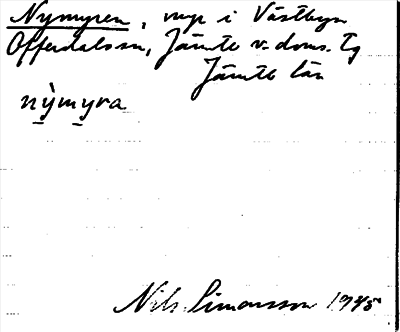 Nymyren, myr i Västbyn
Offerdals sn, Jämtl v. doms. tg
Jämtl län
nỳmyra
Nils Simonsson 1945